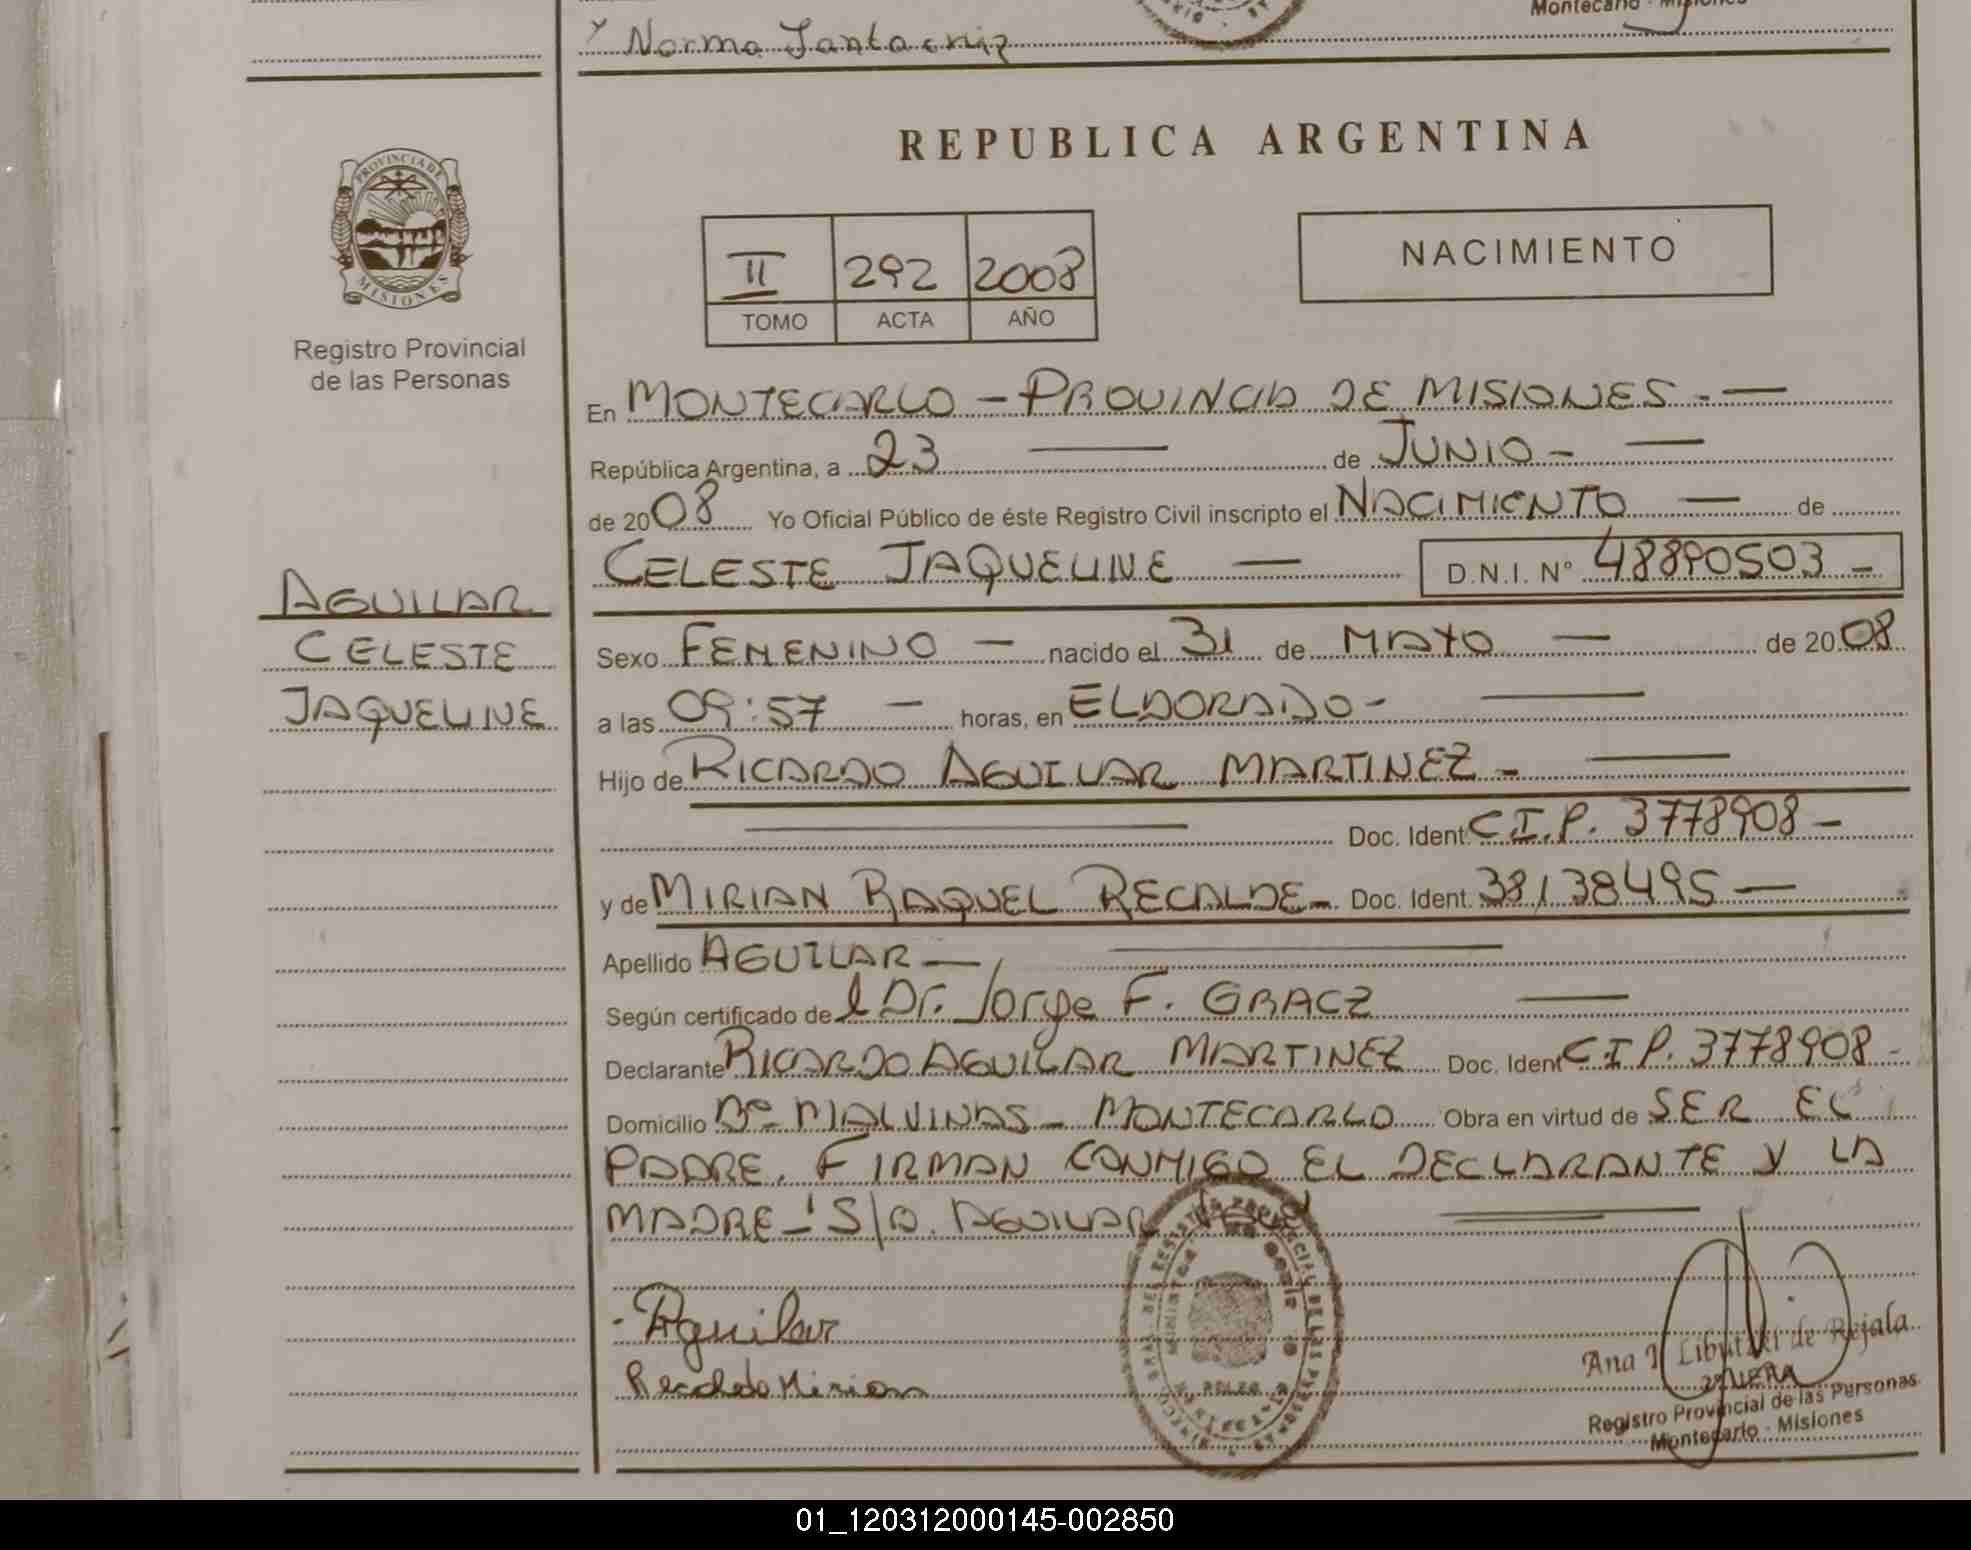 Montecarlo - Misiones
y Norma Santa cruz
REPUBLICA ARGENTINA
PROVINCIA DE MISIONES
Registro Provincial
de las Personas
II 292 2008
TOMO ACTA AÑO
NACIMIENTO
En MONTECARLO - PROVINCIA DE MISIONES - —
República Argentina, a 23 — de JUNIO - —
de 2008 Yo Oficial Público de éste Registro Civil inscripto el NACIMIENTO — de
CELESTE JAQUELINE — D.N.I. N° 48890503 -
AGUILAR
CELESTE
JAQUELINE
Sexo FEMENINO - nacido el 31 de MAYO — de 2008
a las 09:57 - horas, en ELDORADO - —
Hijo de RICARDO AGUILAR MARTINEZ - —
— Doc. Ident. C.I.P. 3778908 -
y de MIRIAN RAQUEL RECALDE - Doc. Ident. 38138495 —
Apellido AGUILAR — —
Según certificado de l Dr. Jorge F. GRACZ —
Declarante RICARDO AGUILAR MARTINEZ Doc. Ident C.I.P. 3778908 -
Domicilio B° MALVINAS - MONTECARLO Obra en virtud de SER EL
PADRE. FIRMAN CONMIGO EL DECLARANTE Y LA
MADRE - S/A. AGUILAR —
Aguilar
Recalde Mirian
Ana I. Libutzki de Rejala
Registro Provincial de las Personas
Montecarlo - Misiones
01_120312000145-002850